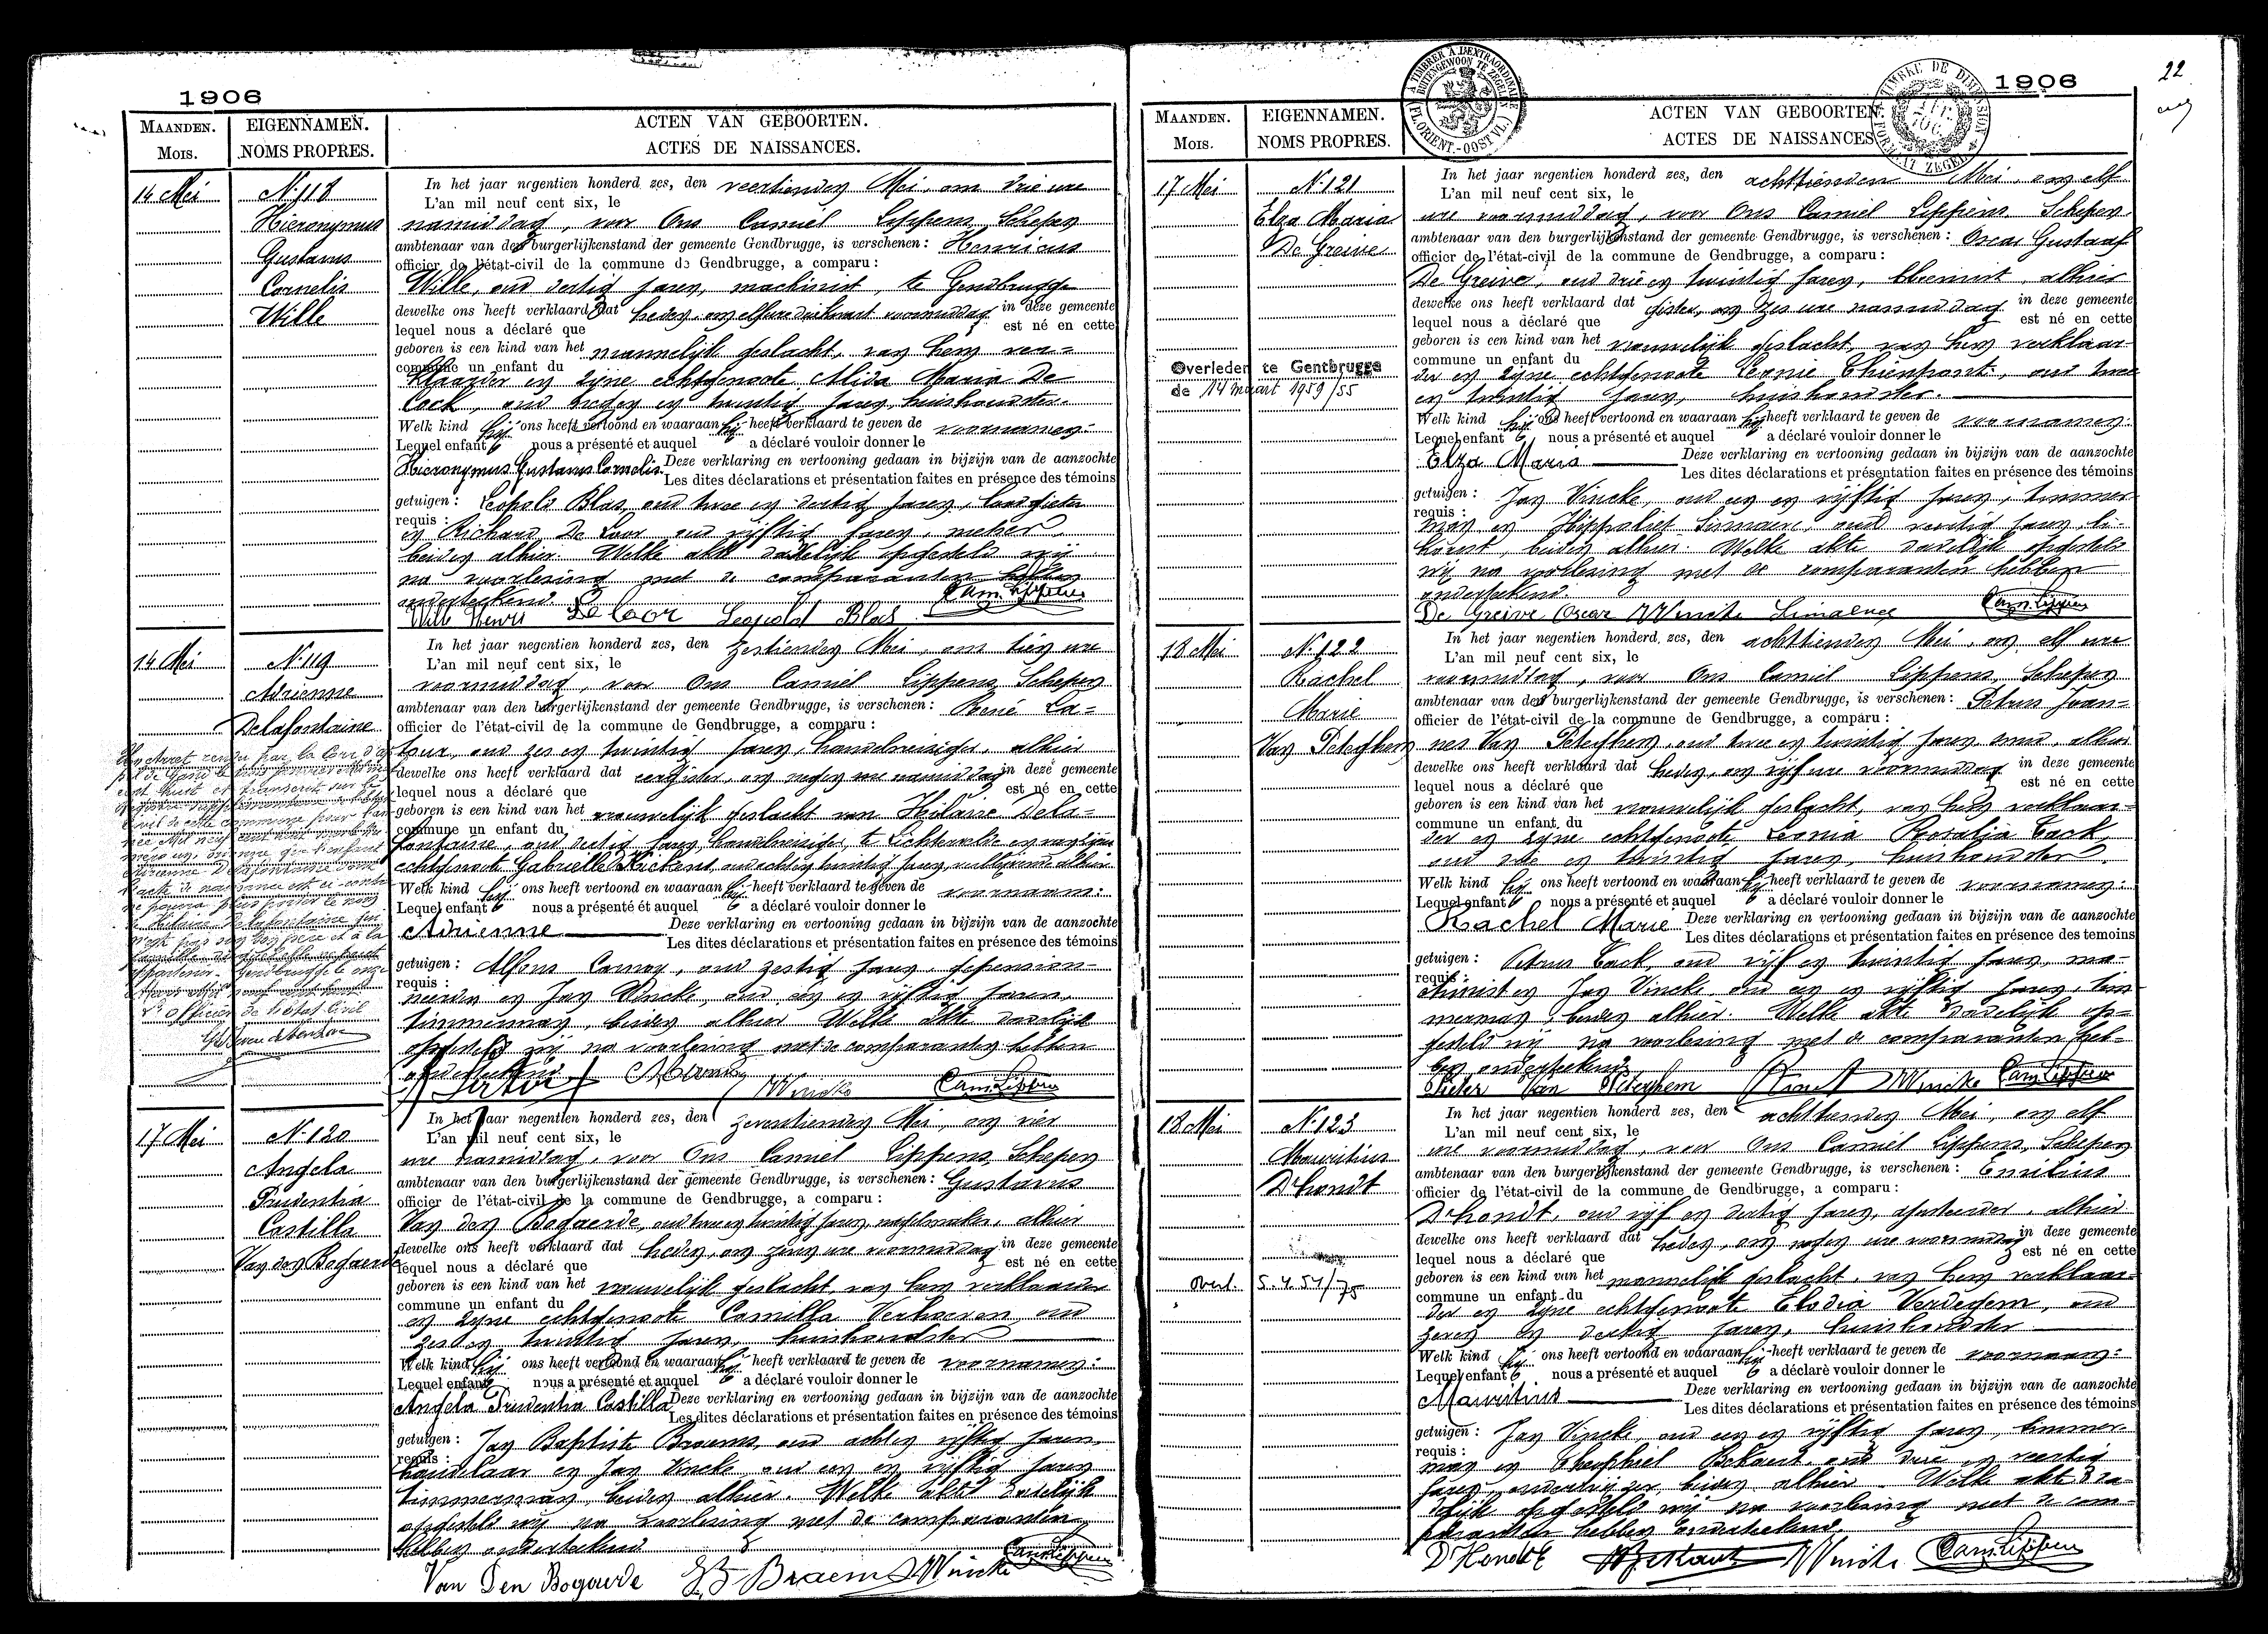 1906
MAANDEN.
MOIS.
EIGENNAMEN.
NOMS PROPRES.
ACTEN VAN GEBOORTEN.
ACTES DE NAISSANCES.
14 Mei
N. 118
Hieronymus
Gustavus
Cornelis
Wille
In het jaar negentien honderd zes, den veertienden Mei, om drie ure
L'an mil neuf cent six, le
namiddag, voor Ons Camiel Lippens, Schepen
ambtenaar van den burgerlijkenstand der gemeente Gendbrugge, is verschenen: Henricus
officier de l'état-civil de la commune de Gendbrugge, a comparu:
Wille, oud dertig jaren, machinist, te Gendbrugge
dewelke ons heeft verklaard dat heden, om elf ure voormiddag in deze gemeente
lequel nous a déclaré que est né en cette
geboren is een kind van het mannelijk geslacht, van hem ver-
commune un enfant du
klaarder en zijne echtgenoote Alida Maria De
Cock, oud negen en twintig jaren, huishoudster.
Welk kind hij ons heeft vertoond en waaraan hij heeft verklaard te geven de voornamen:
Lequel enfant nous a présenté et auquel a déclaré vouloir donner le
Hieronymus Gustavus Cornelis Deze verklaring en vertooning gedaan in bijzijn van de aanzochte
Les dites déclarations et présentation faites en présence des témoins
getuigen: Leopold Blas, oud twee en dertig jaren,
requis:
en Richard De Loor, oud vijftig jaren,
beiden alhier. Welke akte dadelijk opgesteld wij
na voorlezing met de comparanten hebben
onderteekend.
Wille Henri De Loor Leopold Blas Cam. Lippens
14 Mei
N. 119
Adrienne
Delafontaine
In het jaar negentien honderd zes, den zestienden Mei, om tien ure
L'an mil neuf cent six, le
voormiddag, voor Ons Camiel Lippens, Schepen
ambtenaar van den burgerlijkenstand der gemeente Gendbrugge, is verschenen: René La-
officier de l'état-civil de la commune de Gendbrugge, a comparu:
tour, oud zes en twintig jaren, handelsreiziger, alhier
dewelke ons heeft verklaard dat eergister, om negen ure namiddag in deze gemeente
lequel nous a déclaré que est né en cette
geboren is een kind van het vrouwelijk geslacht van Hilaire Dela-
commune un enfant du
fontaine, oud dertig jaren, handelsreiziger, te Lichtervelde en van zijne
echtgenoote Gabrielle oud acht en twintig jaren, alhier.
Welk kind hij ons heeft vertoond en waaraan hij heeft verklaard te geven de voornaam:
Lequel enfant nous a présenté et auquel a déclaré vouloir donner le
Adrienne Deze verklaring en vertooning gedaan in bijzijn van de aanzochte
Les dites déclarations et présentation faites en présence des témoins
getuigen: Alfons oud zestig jaren, gepension-
requis:
neerden en Jan Vincke, oud een en vijftig jaren,
timmerman, beiden alhier. Welke akte dadelijk
opgesteld wij na voorlezing met de comparanten hebben
onderteekend.
J Vincke Cam. Lippens
L'officier de l'état Civil
17 Mei
N. 120
Angela
Prudentia
Castilla
Van den Bogaerde
In het jaar negentien honderd zes, den zeventienden Mei, om vier
L'an mil neuf cent six, le
ure namiddag, voor Ons Camiel Lippens, Schepen
ambtenaar van den burgerlijkenstand der gemeente Gendbrugge, is verschenen: Gustavus
officier de l'état-civil de la commune de Gendbrugge, a comparu:
Van den Bogaerde, oud twee en twintig jaren, nagelmaker, alhier
dewelke ons heeft verklaard dat heden, om zeven ure voormiddag in deze gemeente
lequel nous a déclaré que est né en cette
geboren is een kind van het vrouwelijk geslacht, van hem verklaarder
commune un enfant du
en zijne echtgenoote Camilla Verhaeven, oud
zes en twintig jaren, huishoudster
Welk kind hij ons heeft vertoond en waaraan hij heeft verklaard te geven de voornamen:
Lequel enfant nous a présenté et auquel a déclaré vouloir donner le
Angela Prudentia Castilla Deze verklaring en vertooning gedaan in bijzijn van de aanzochte
Les dites déclarations et présentation faites en présence des témoins
getuigen: Jan Baptiste Braems, oud acht en vijftig jaren,
requis:
handelaar en Jan Vincke oud een en vijftig jaren
timmerman, beiden alhier. Welke akte dadelijk
opgesteld wij na voorlezing met de comparanten
hebben onderteekend
Van Den Bogaerde JB Braem J Vincke Cam. Lippens
1906
22
A TIMBRER A L'EXTRAORDINAIRE
BUITENGEWOON TE ZEGELEN
(FL. ORIENT.-OOST VL.)
TIMBRE DE DIMENSION
FORMAAT ZEGEL
MAANDEN.
MOIS.
EIGENNAMEN.
NOMS PROPRES.
ACTEN VAN GEBOORTEN.
ACTES DE NAISSANCES
17 Mei
N. 121
Elza Maria
De Greive
Overleden te Gentbrugge
de 14 maart 1959/55
In het jaar negentien honderd zes, den achttienden Mei, om elf
L'an mil neuf cent six, le
ure voormiddag, voor Ons Camiel Lippens, Schepen
ambtenaar van den burgerlijkenstand der gemeente Gendbrugge, is verschenen: Oscar Gustaaf
officier de l'état-civil de la commune de Gendbrugge, a comparu:
De Greive, oud drie en twintig jaren, bloemist, alhier
dewelke ons heeft verklaard dat gister, om zes ure namiddag in deze gemeente
lequel nous a déclaré que est né en cette
geboren is een kind van het vrouwelijk geslacht, van hem verklaar-
commune un enfant du
der en zijne echtgenoote Leonie Thienpont, oud twee
en twintig jaren, huishoudster.
Welk kind hij ons heeft vertoond en waaraan hij heeft verklaard te geven de voornamen:
Lequel enfant nous a présenté et auquel a déclaré vouloir donner le
Elza Maria Deze verklaring en vertooning gedaan in bijzijn van de aanzochte
Les dites déclarations et présentation faites en présence des témoins
getuigen: Jan Vincke, oud een en vijftig jaren, timmer-
requis:
man en Hippoliet oud veertig jaren,
beiden alhier. Welke akte dadelijk opgesteld
wij na voorlezing met de comparanten hebben
onderteekend.
De Greive Oscar J Vincke Cam. Lippens
18 Mei
N. 122
Rachel
Marie
Van Peteghem
In het jaar negentien honderd zes, den achttienden Mei, om elf ure
L'an mil neuf cent six, le
voormiddag, voor Ons Camiel Lippens, Schepen
ambtenaar van den burgerlijkenstand der gemeente Gendbrugge, is verschenen: Petrus Joan-
officier de l'état-civil de la commune de Gendbrugge, a comparu:
nes Van Peteghem, oud twee en twintig jaren, smid, alhier
dewelke ons heeft verklaard dat heden, om vijf ure voormiddag in deze gemeente
lequel nous a déclaré que est né en cette
geboren is een kind van het vrouwelijk geslacht, van hem verklaar-
commune un enfant du
der en zijne echtgenoote Leonia Rosalia Cack,
oud drie en twintig jaren, huishoudster.
Welk kind hij ons heeft vertoond en waaraan hij heeft verklaard te geven de voornamen:
Lequel enfant nous a présenté et auquel a déclaré vouloir donner le
Rachel Marie Deze verklaring en vertooning gedaan in bijzijn van de aanzochte
Les dites déclarations et présentation faites en présence des temoins
getuigen: Petrus Cack, oud vijf en twintig jaren, ma-
requis:
chinist en Jan Vincke, oud een en vijftig jaren, tim-
merman, beiden alhier. Welke akte dadelijk op-
gesteld wij na voorlezing met de comparanten heb-
ben onderteekend.
Pieter Van Peteghem J Vincke Cam. Lippens
18 Mei
N. 123
Mauritius
D'hondt
overl. 5.4.54/75
In het jaar negentien honderd zes, den achttienden Mei, om elf
L'an mil neuf cent six, le
ure voormiddag, voor Ons Camiel Lippens, Schepen
ambtenaar van den burgerlijkenstand der gemeente Gendbrugge, is verschenen: Emilius
officier de l'état-civil de la commune de Gendbrugge, a comparu:
D'hondt, oud vijf en dertig jaren, alhier
dewelke ons heeft verklaard dat heden, om negen ure voormiddag in deze gemeente
lequel nous a déclaré que est né en cette
geboren is een kind van het mannelijk geslacht, van hem verklaar-
commune un enfant du
der en zijne echtgenoote Elodia Verdegem, oud
zeven en dertig jaren, huishoudster
Welk kind hij ons heeft vertoond en waaraan hij heeft verklaard te geven de voornaam:
Lequel enfant nous a présenté et auquel a déclaré vouloir donner le
Mauritius Deze verklaring en vertooning gedaan in bijzijn van de aanzochte
Les dites déclarations et présentation faites en présence des témoins
getuigen: Jan Vincke, oud een en vijftig jaren, timmer-
requis:
man en Theophiel Bekaert, oud drie en veertig
jaren, onderwijzer, beiden alhier. Welke akte da-
delijk opgesteld wij na voorlezing met de com-
paranten hebben onderteekend.
D'Hondt J Vincke Cam. Lippens